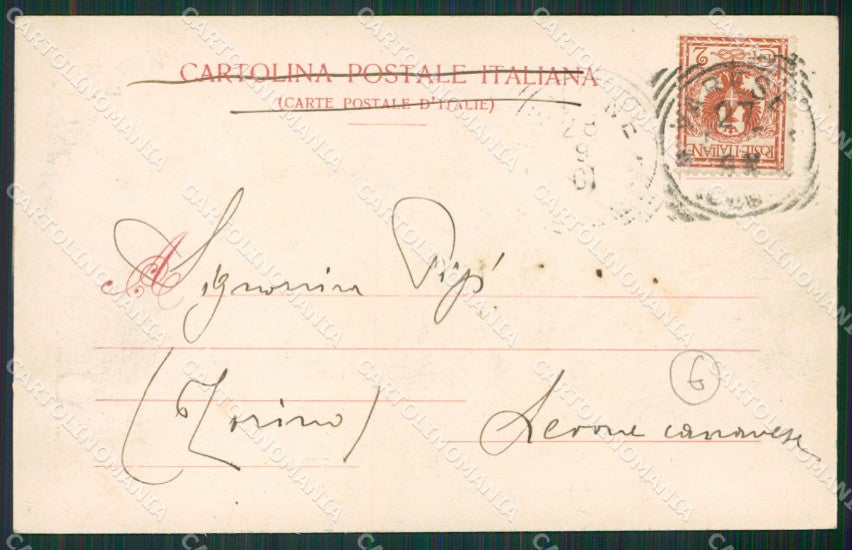 CARTOLINA POSTALE ITALIANA
(CARTE POSTALE D'ITALIE)
28
9
01
27
POSTE ITALIANE
C. 2
A Signorina Pipi
6
(Torino)
Canavese
CARTOLINOMANIA